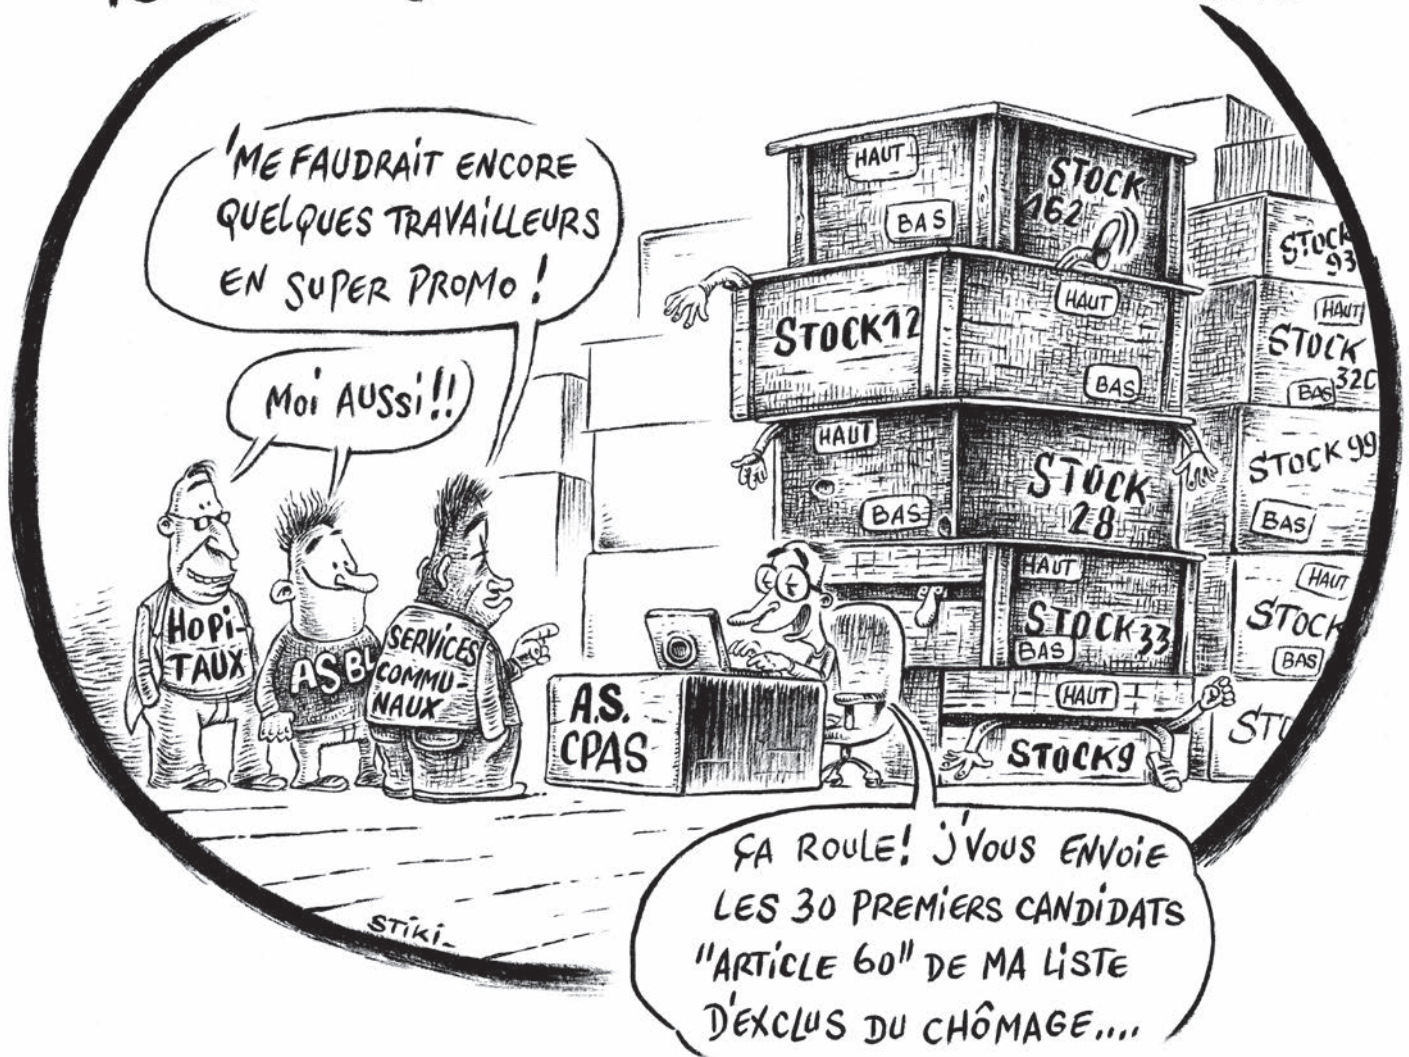 'ME FAUDRAIT ENCORE
QUELQUES TRAVAILLEURS
EN SUPER PROMO !
MOI AUSSI !!
HOPI-
TAUX
ASBL
SERVICES
COMMU-
NAUX
A.S.
CPAS
HAUT
BAS
STOCK
162
STOCK 12
HAUT
BAS
HAUT
BAS
STOCK
28
HAUT
STOCK 33
BAS
HAUT
STOCK 9
STOCK
93
HAUT
STOCK
32C
BAS
STOCK 99
BAS
HAUT
STOCK
BAS
STO
ÇA ROULE! J'VOUS ENVOIE
LES 30 PREMIERS CANDIDATS
"ARTICLE 60" DE MA LISTE
D'EXCLUS DU CHÔMAGE....
STIKI_